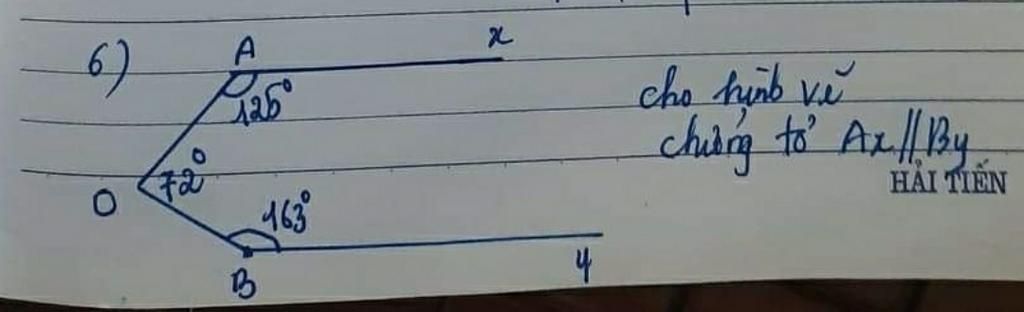 6)
A
x
125°
cho hình vẽ
chứng tỏ Ax // By
HẢI TIẾN
O
72°
163°
B
y